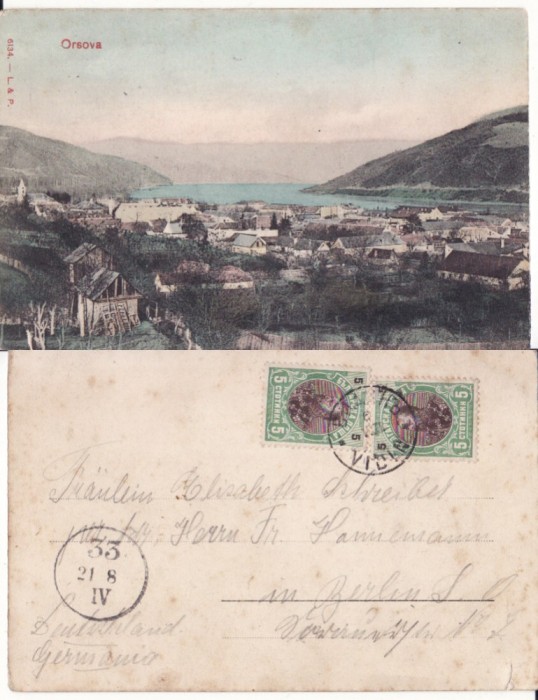 6134. — L. & P.
Orsova
5
5
СТОТИНКИ
5
5
5
СТОТИНКИ
5
Fräulein Elisabeth Schreiber
Herrn Fr. Hannemann
in Berlin S.O
33
21 8
IV
Deutschland.
Germania